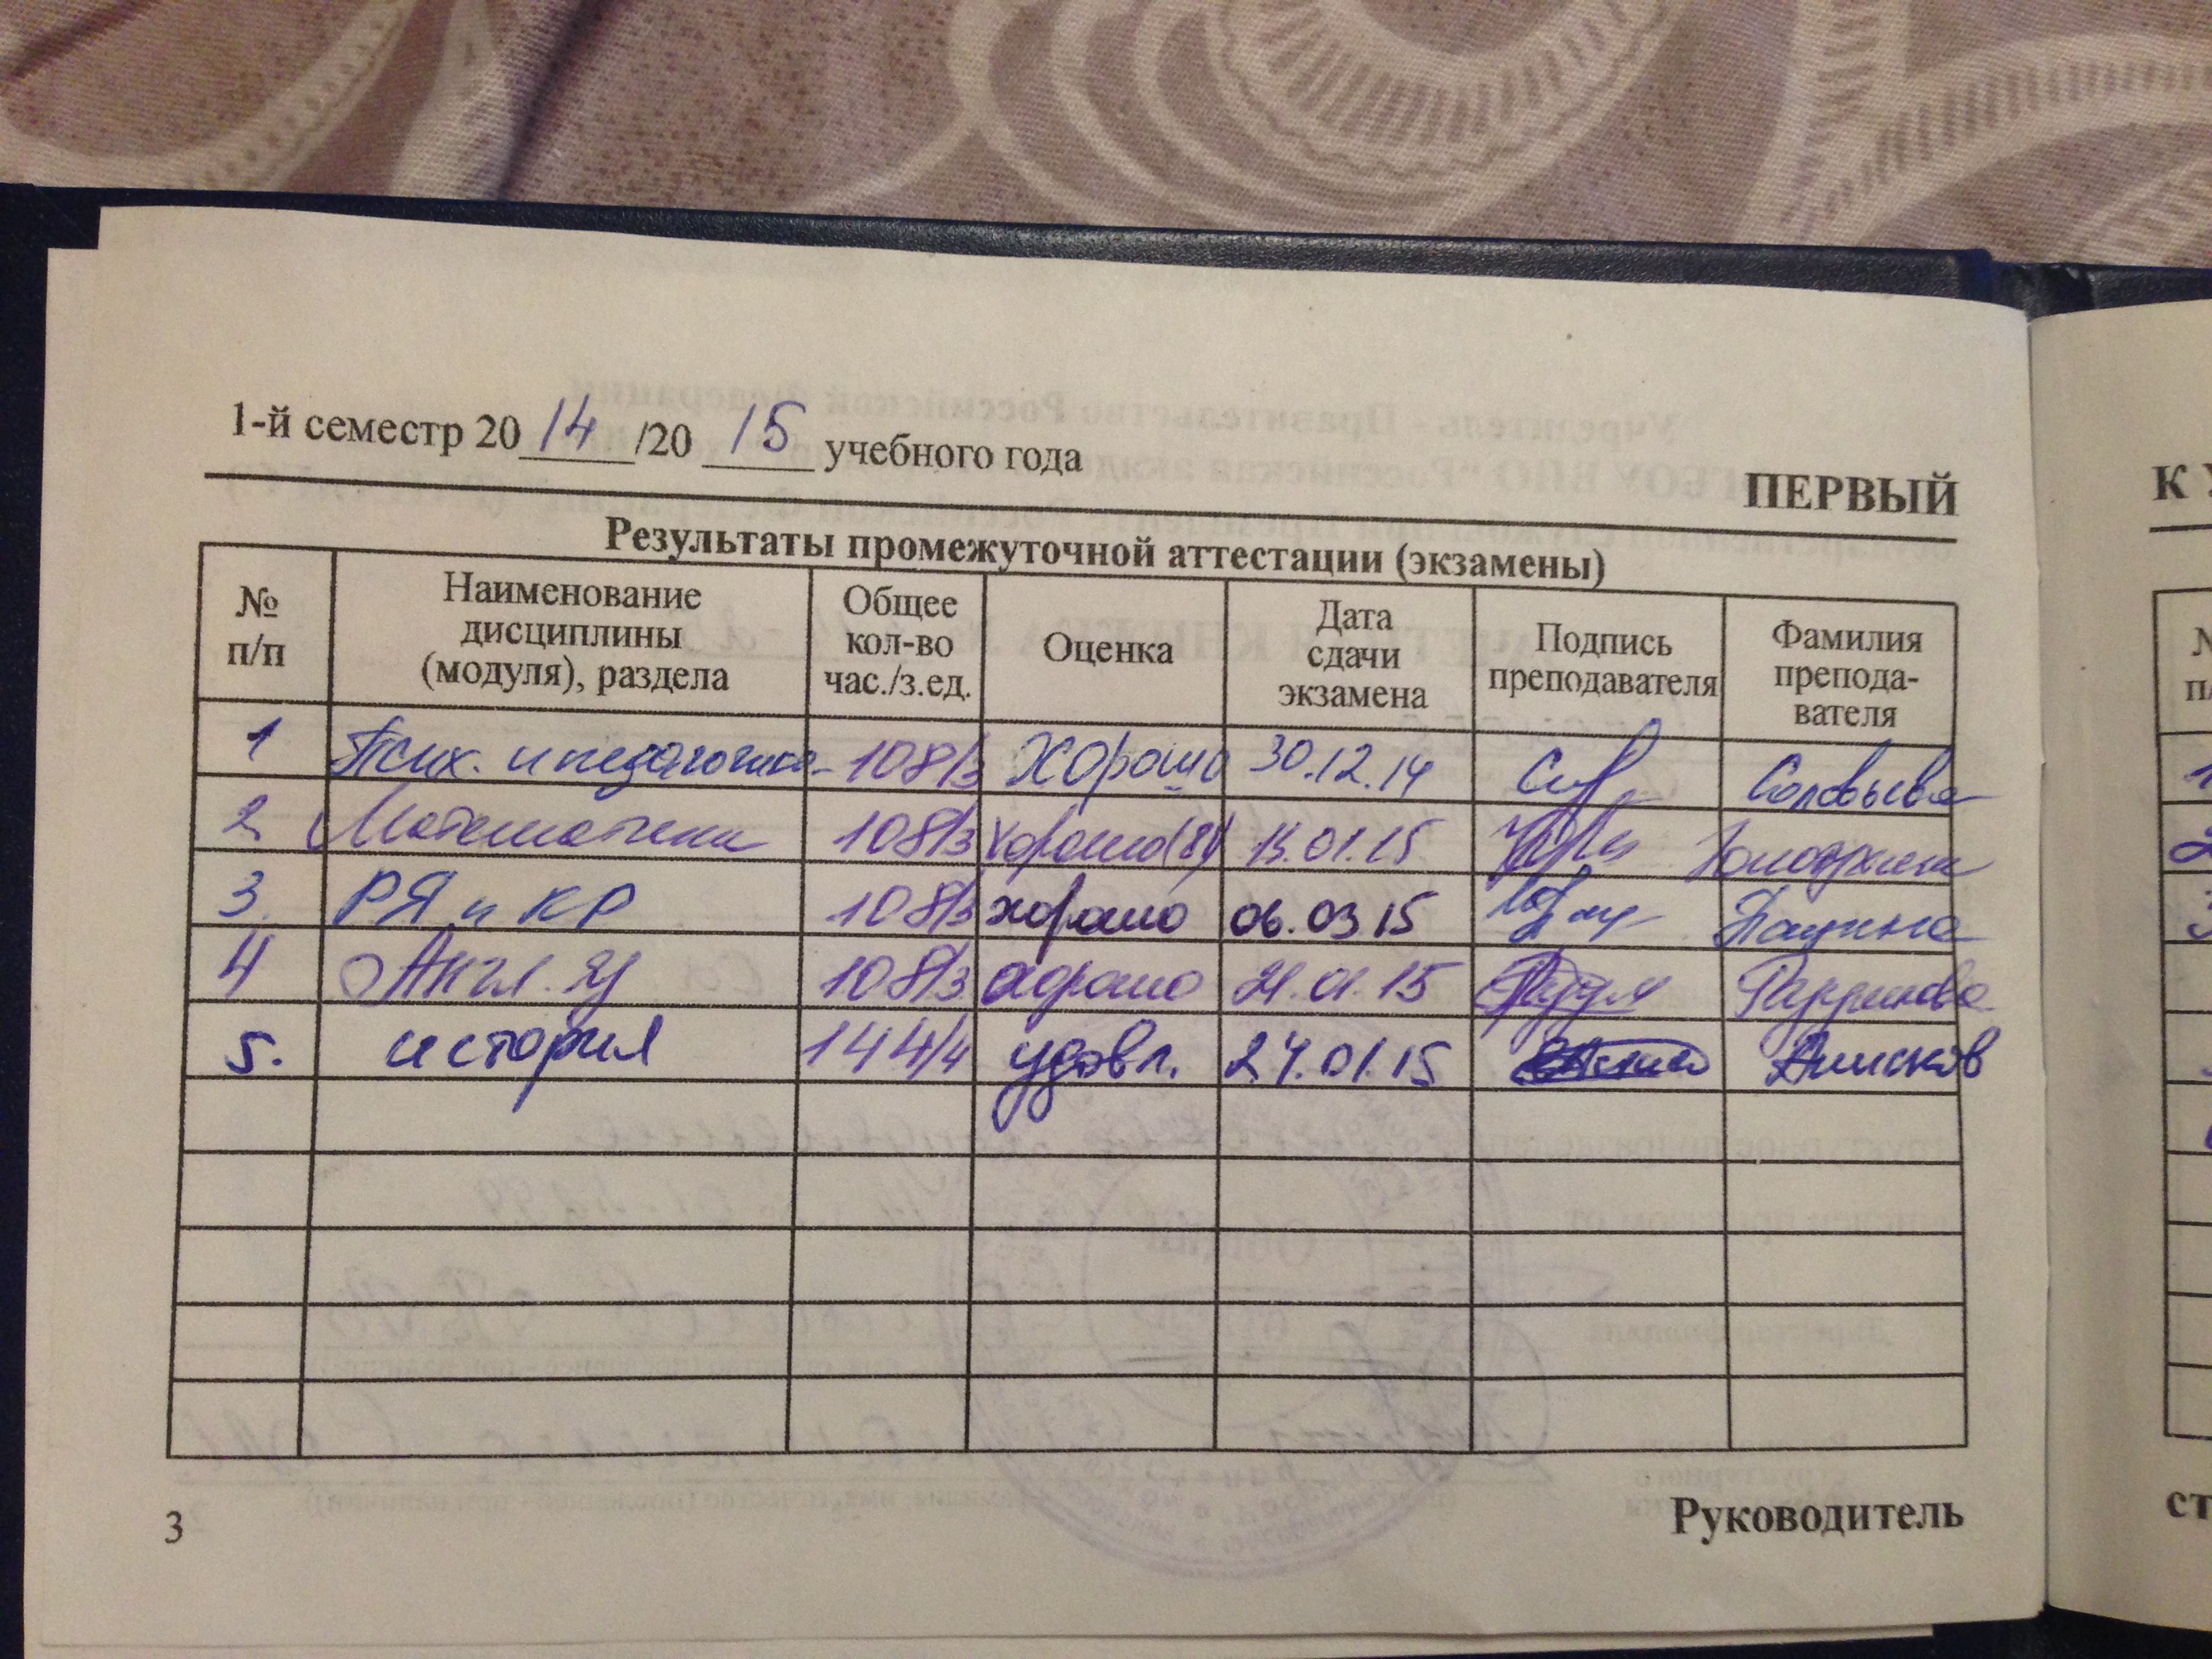 1-й семестр 2014/2015 учебного года
ПЕРВЫЙ
Результаты промежуточной аттестации (экзамены)
№ п/п Наименование дисциплины (модуля), раздела Общее кол-во час./з.ед. Оценка Дата сдачи экзамена Подпись преподавателя Фамилия препода-вателя
1 Псих. и педагогика 108/3 Хорошо 30.12.14 Соловьева
2 Математика 108/3 хорошо 01.15
3. РЯ и КР 108/3 хорошо 06.03.15
4 Англ. яз 108/3 хорошо 21.01.15
5. история 144/4 удовл. 24.01.15 Анисков
3
Руководитель